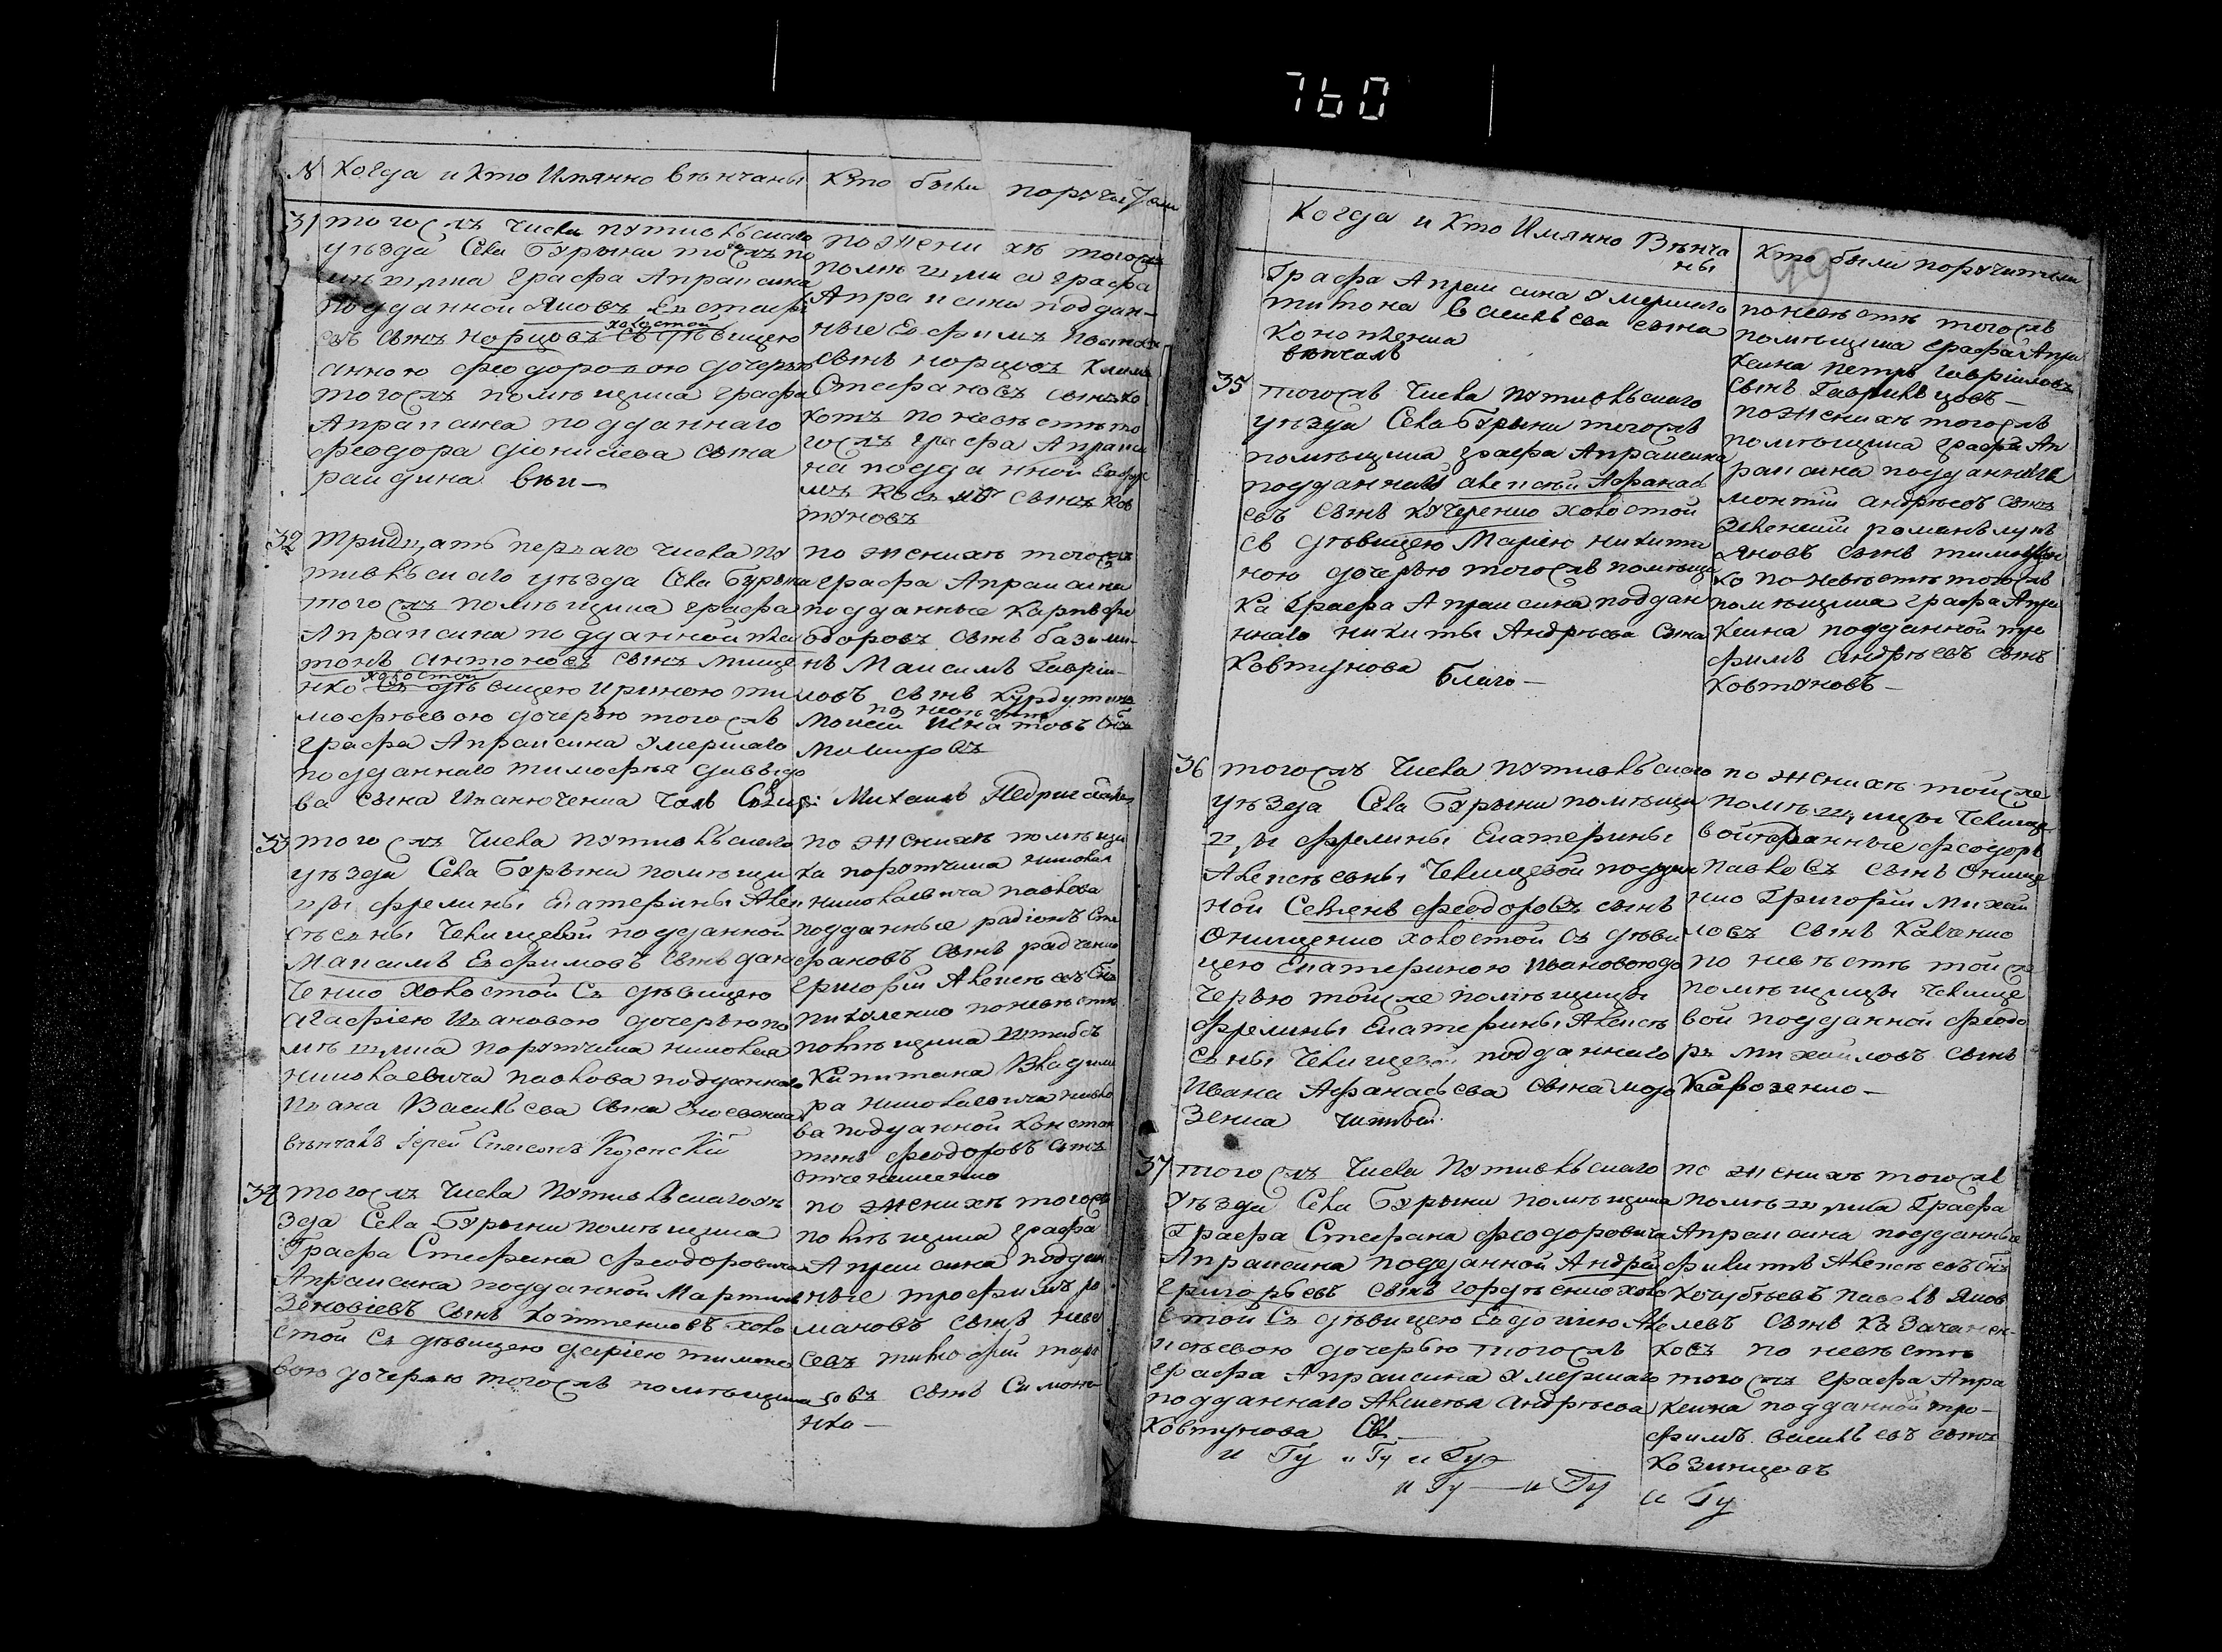 760
№ Когда и кто Имянно венчаны
Кто были поручители
31 тогожъ числа путивльскаго
уѣзда села Бурыни тогожъ по
мѣщика графа Апраксина
подданной Яковъ Евстафі
евъ сынъ Норцовъ холостой съ дѣвицею
Анною Феодоровою дочерью
тогожъ помѣщика графа
Апраксина подданнаго
Феодора Діонисіева сына
вѣн—
по женихѣ тогожъ
помѣщика графа
Апраксина поддан-
ные Евфимъ
сынъ Норцовъ
Стефановъ сынъ
по невѣстѣ то
гожъ графа Апракси
на подданной
сынъ Ков
туновъ
32 тридцать перваго числа пу
тивльскаго уѣзда села Бурыни
тогожъ помѣщика графа
Апраксина подданной Пла
тонъ Антоновъ сынъ Мище
нко холостой съ дѣвицею Ириною ти
мофѣевою дочерью тогожъ
графа Апраксина умершаго
подданнаго тимофѣя Давидо
ва сына Иванюченка
по женихѣ тогожъ
графа Апраксина
подданные Карпъ Фе
одоровъ сынъ
Максимъ Гаврии-
ловъ сынъ
по невѣстѣ
Моисей Игнатовъ сынъ
Михаилъ
33 тогожъ числа путивльскаго
уѣзда села Бурыни помѣщи
цы фрелины Екатерины Алек
сѣевны Челищевой подданной
Максимъ Евфимовъ сынъ Дани
ченко холостой съ дѣвицею
Агафіею Ивановою дочерью по
мѣщика порутчика Николая
Николаевича Павлова подданнаго
Ивана Васильева сына
вѣнчалъ Іерей Симеонъ
по женихѣ помѣщи
ка порутчика Николая
Николаевича Павлова
подданные Радіонъ Сте
фановъ сынъ Радченко
Григорій Алексѣевъ сынъ
Пихуленко по невѣстѣ
помѣщика штабсъ
Капитана Владими
ра Николаевича Павло
ва подданной Констан
тинъ Феодоровъ сынъ
34 тогожъ числа Путивльскаго уѣ
зда Села Бурыни помѣщика
Графа Стефана Феодоровича
Апраксина подданной Мартинъ
Зеновіевъ сынъ Коптенковъ холо
стой съ дѣвицею Даріею тимоне
вою дочерью тогожъ помѣщика
по женихѣ тогожъ
помѣщика графа
Апраксина поддан
ные трофимъ Ро
мановъ сынъ
тимофей
сынъ Симоне-
нко —
Когда и кто Имянно Вѣнча
ны
Кто были поручители
99
Графа Апраксина умершаго
титона Васильева сына
Конопленка
вѣнчалъ
по невѣстѣ тогожъ
помѣщика графа Апра
ксина Петръ Гавріиловъ
сынъ Гаврильцовъ —
35 тогожъ числа путивльскаго
уѣзда Села Бурыни тогожъ
помѣщика графа Апраксина
подданный Алексѣй Афанась
евъ сынъ Кучеренко холостой
съ дѣвицею Маріею Никити
ною дочерью тогожъ помѣщи
ка Графа Апраксина поддан
ннаго Никиты Андрѣева Сына
Ковтунова Благо—
по женихѣ тогожъ
помѣщика графа Ап
раксина подданные
Монтій Андрѣевъ сынъ
Зеленскій Романъ Лукь
яновъ сынъ
по невѣстѣ тогожъ
помѣщика графа Апра
ксина подданной тро
фимъ Андрѣевъ сынъ
Ковтуновъ —
36 тогожъ числа путивльскаго
уѣзда Села Бурыни помѣщи
цы фрелины Екатерины
Алексѣевны Челищевой поддан
ной Семенъ Феодоровъ сынъ
Онищенко холостой съ дѣви
цею Екатериною Ивановою до
черью тойже помѣщицы
фрелины Екатерины Алексѣ
евны Челищевой подданнаго
Ивана Афанасьева сына Моро
Зенка
по женихѣ тойже
помѣщицы Челище
вой подданные Феодоръ
Павловъ сынъ Онище
нко Григорій Михай
ловъ сынъ Кавченко
по невѣстѣ тойже
помѣщицы Челище
вой подданной Феодо
ръ Михайловъ сынъ
Карозенко —
37 тогожъ числа Путивльскаго
уѣзда Села Бурыни помѣщика
Графа Стефана Феодоровича
Апраксина подданной Андрей
Григорьевъ сынъ Гордѣенко холо
стой съ дѣвицею Евдокіею Але
ксѣевою дочерью тогожъ
графа Апраксина умершаго
подданнаго Алексѣя Андрѣева
Ковтунова
и Гу и Гу и Гу
и Гу — и Гу
по женихѣ тогожъ
помѣщика Графа
Апраксина подданные
Филипъ Алексѣевъ сынъ
Кочубѣевъ Павелъ Яков
левъ сынъ Казачен-
ковъ по невѣстѣ
тогожъ графа Апра
ксина подданной тро-
фимъ Васильевъ сынъ
Козинцовъ
и Гу